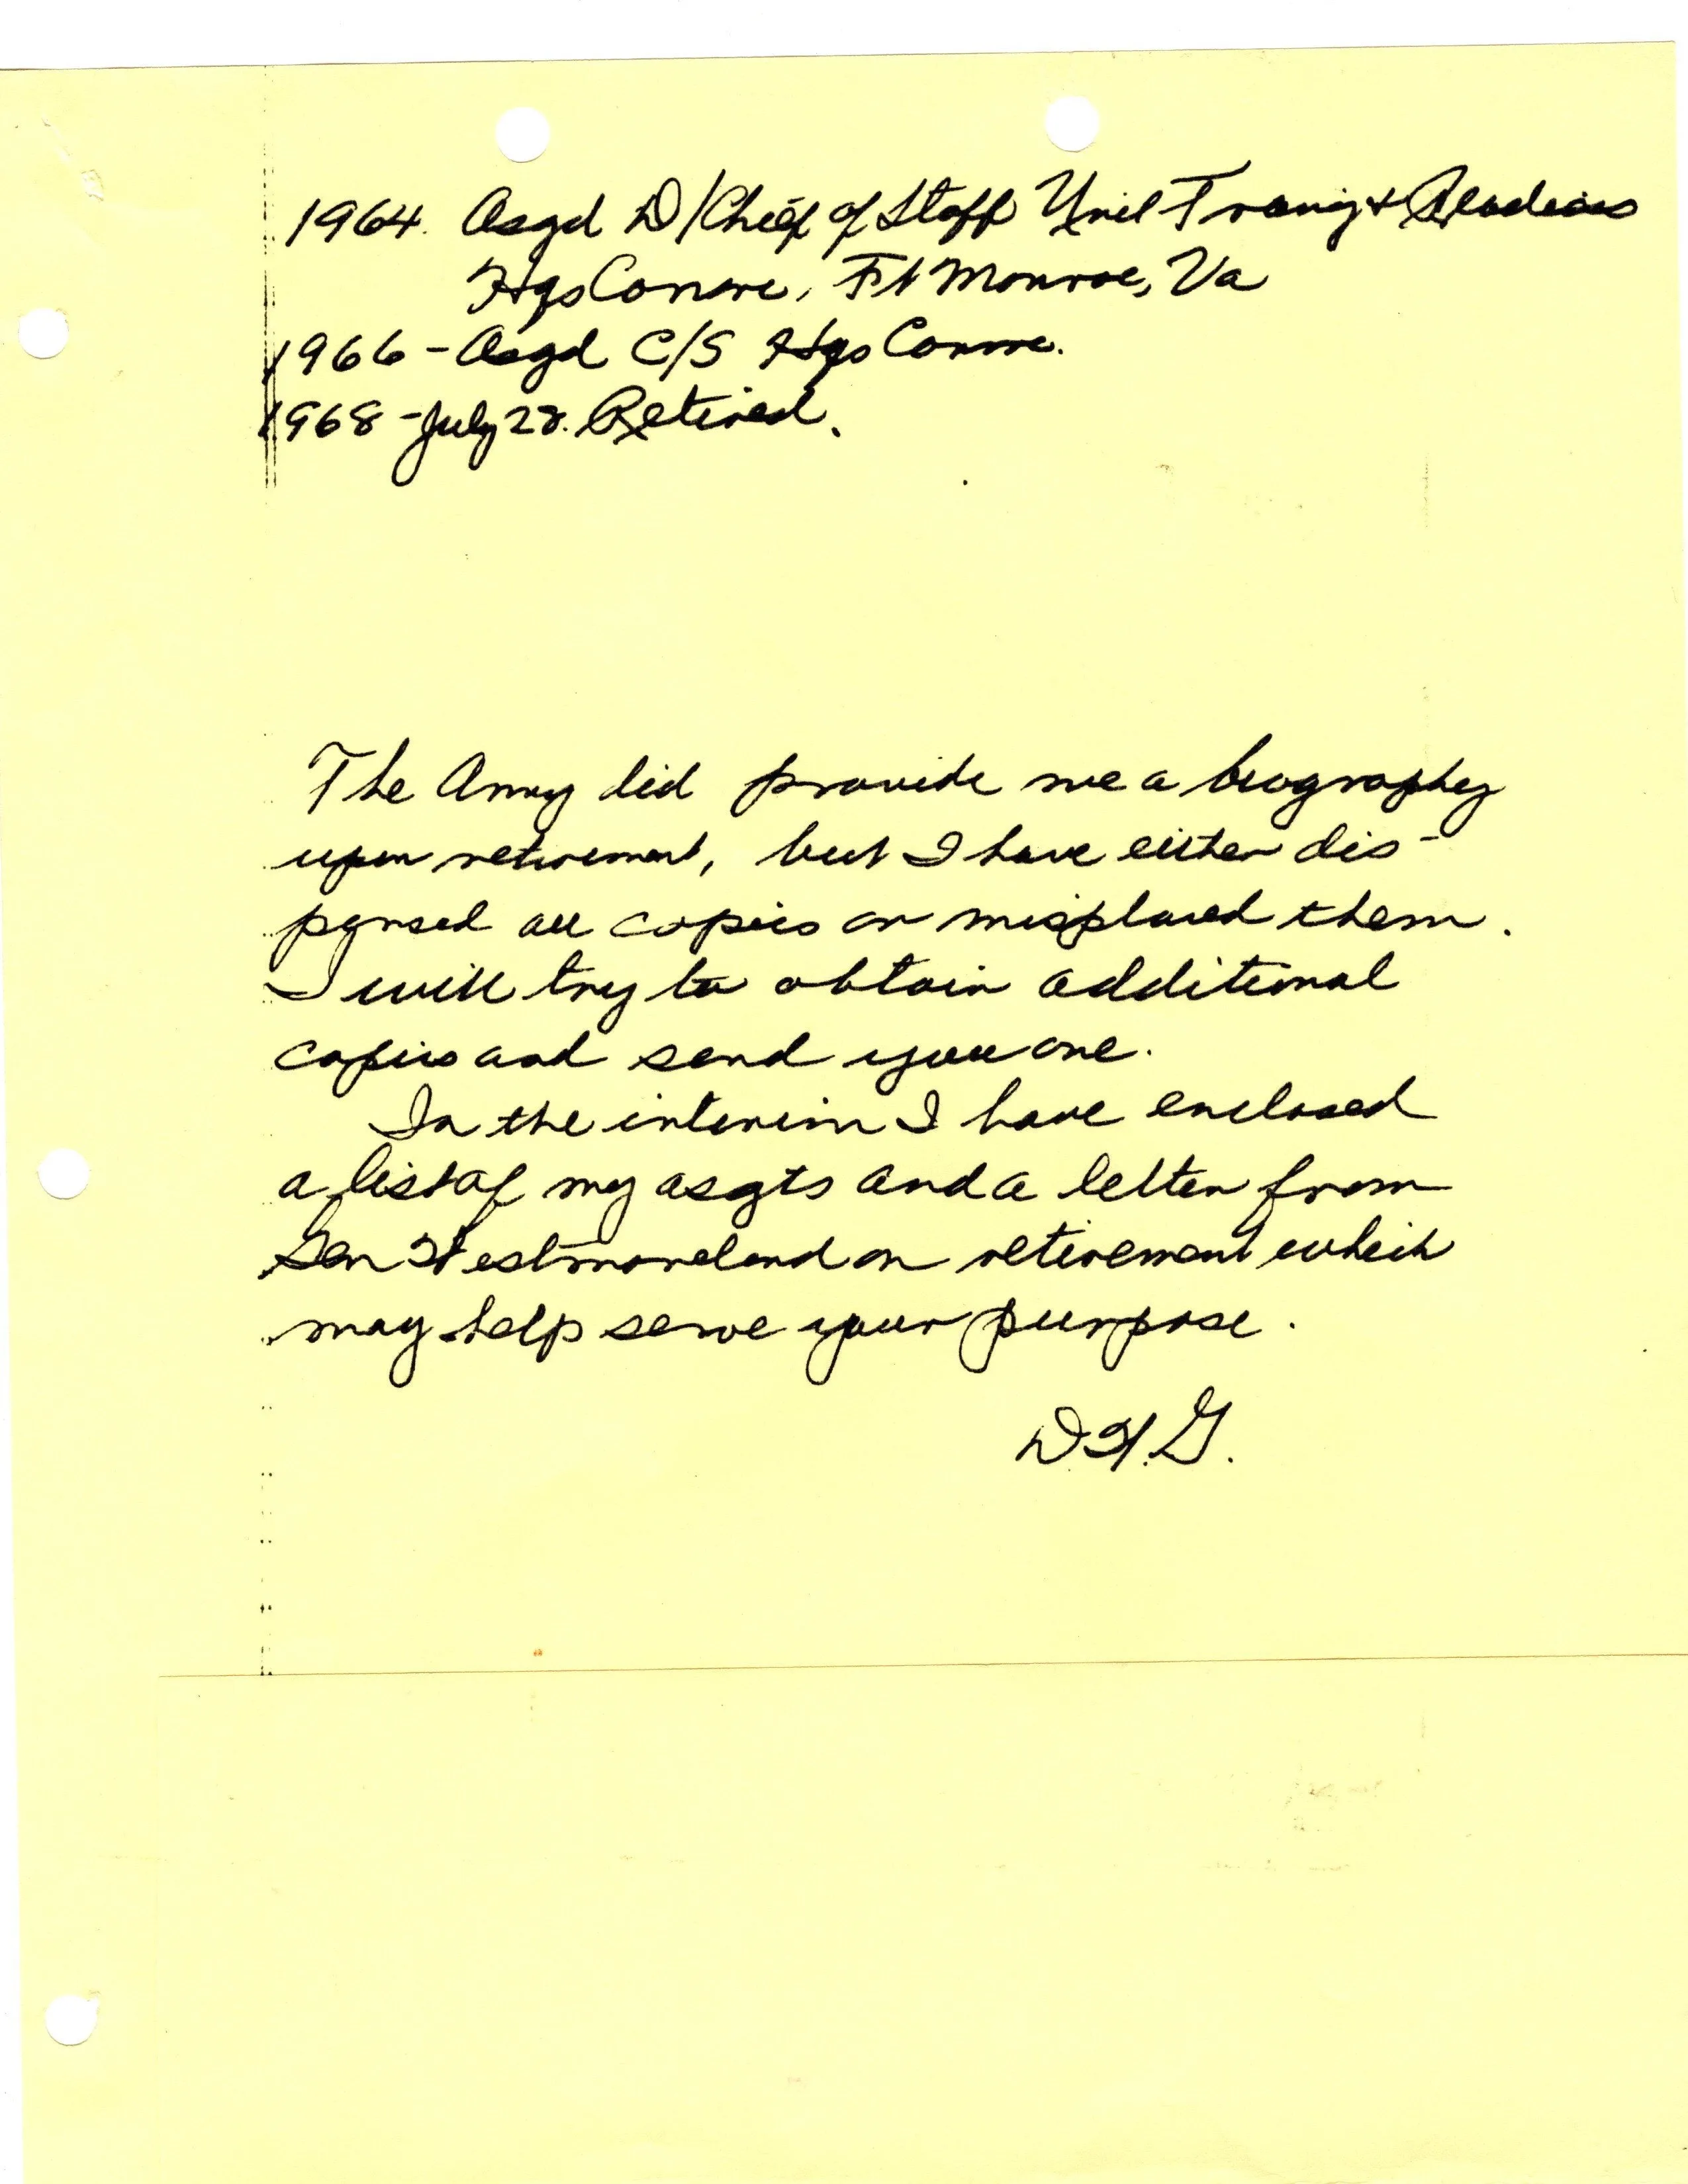 1964. Asgd D/Chief of Staff Unit Traing + Readiness
Hqs Conarc, Ft Monroe, Va
1966 - Asgd C/S Hqs Conarc.
1968 - July 28. Retired.
The Army did provide me a biography
upon retirement, but I have either dis-
persed all copies or misplaced them.
I will try to obtain additional
copies and send you one.
In the interim I have enclosed
a list of my asgts and a letter from
Gen Westmoreland on retirement which
may help serve your purpose.
D.H.G.